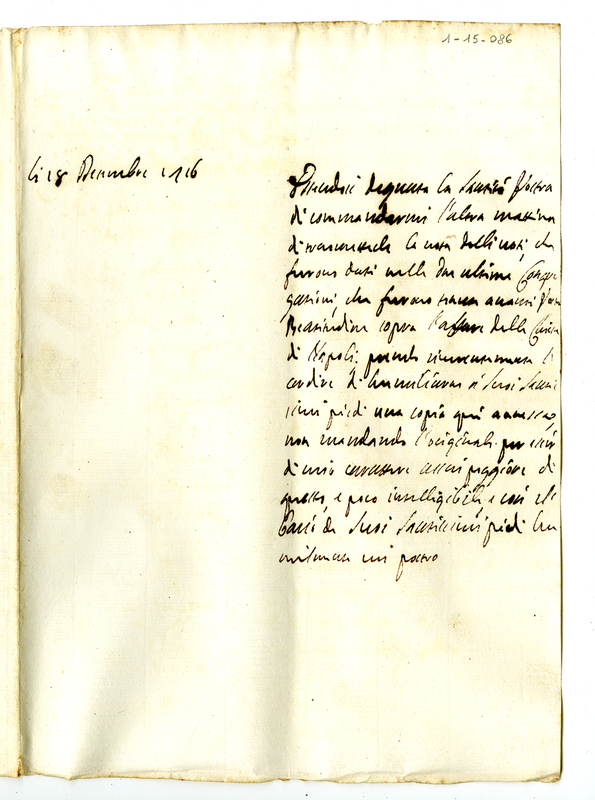 1-15-086
li 18 Decembre 1716
Essendosi degnata la Santità Vostra
di commandarmi l'altra mattina
di trasmetterle la nota delli voti, che
furono dati nelle due ultime Congre
gazioni, che furono tenute avanti Vostra
Beatitudine sopra l'affare delle Chiese
di Napoli, prendo
ardire di humiliare a Suoi Santis
simi piedi una copia qui annessa,
non mandando l'originale per esser
di mio carattere assai peggiore di
questo, e poco intelligibile, e così al
bacio de Suoi Santissimi piedi hu
milmente mi prostro